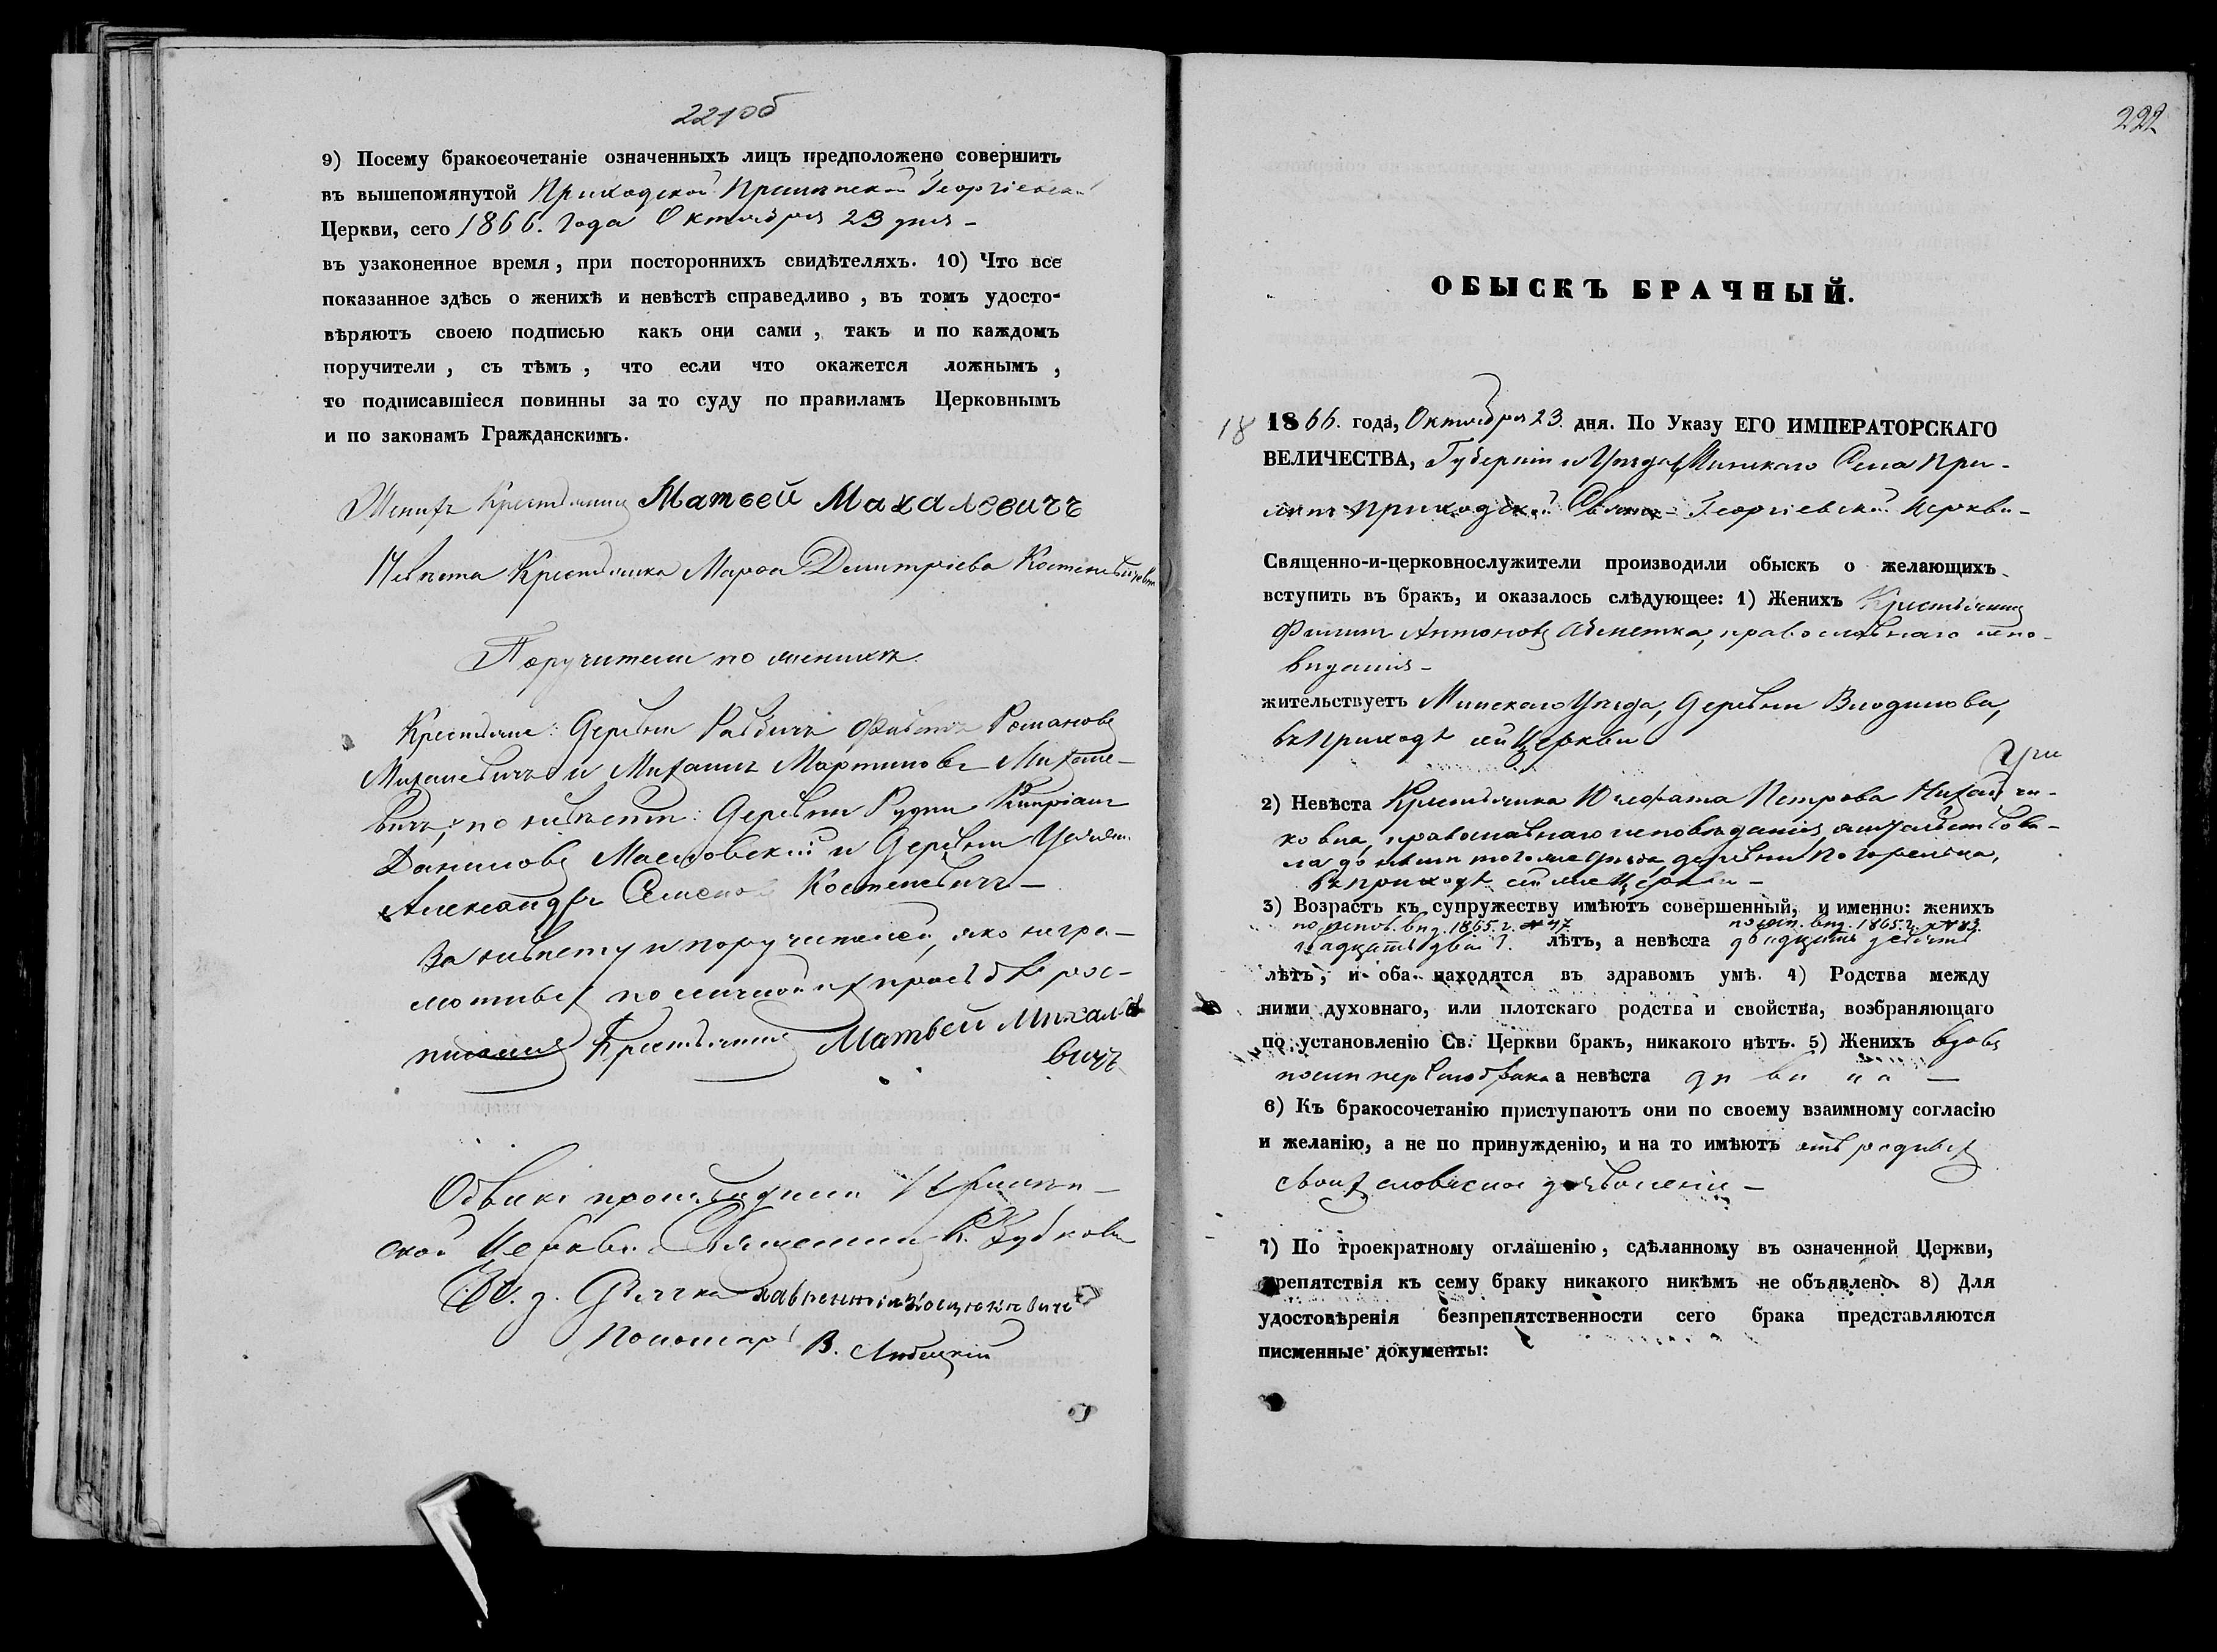 221об
9) Посему бракосочетаніе означенныхъ лицъ предположено совершить
въ вышепомянутой Приходской Прилепской Георгіевской
Церкви, сего 1866. года Октября 23 дня –
въ узаконенное время, при постороннихъ свидѣтеляхъ. 10) Что все
показанное здѣсь о женихѣ и невѣстѣ справедливо, въ томъ удосто-
вѣряютъ своею подписью какъ они сами, такъ и по каждомъ
поручители, съ тѣмъ, что если что окажется ложнымъ,
то подписавшіеся повинны за то суду по правиламъ Церковнымъ
и по законамъ Гражданскимъ.
Женихъ Крестьянинъ Матвей Махалевичъ
Невѣста Крестьянка Марѳа Димитріева
Поручители по женихѣ
Крестьяне: Деревни Романовъ
Михалевичъ и Михаилъ Мартиновъ Михале-
вичъ, по невѣстѣ: Деревни Рудни Кипріанъ
Даниловъ Масловскій и Деревни
Александръ Семеновъ Костеневичъ –
За невѣсту и поручителей, яко негра-
мотныхъ по личной ихъ прозьбѣ рос-
писался Крестьянинъ Матвей Михале
вичъ
Обыскъ производили Прилеп-
ской Церкви Священникъ К. Зубковичъ
И. д. Дьячка Лаврентій
Пономарь В. Любецкій
222
ОБЫСКЪ БРАЧНЫЙ.
18 1866. года, Октября 23. дня. По Указу ЕГО ИМПЕРАТОРСКАГО
ВЕЛИЧЕСТВА, Губерніи и Уѣзда Минскаго Села При-
лепъ Приходской Свято-Георгіевской Церкви –
Священно-и-церковнослужители производили обыскъ о желающихъ
вступить въ бракъ, и оказалось слѣдующее: 1) Женихъ Крестьянинъ
Филипъ Антоновъ Абметка, православнаго испо-
вѣданія –
жительствуетъ Минскаго Уѣзда, Деревни
въ Приходѣ сей Церкви
2) Невѣста Крестьянка Юзефата Петрова
ковна, православнаго исповѣданія, жительствова-
ла до нынѣ того же Уѣзда, деревни Погорельца,
въ приходѣ сей же Церкви –
3) Возрастъ къ супружеству имѣютъ совершенный, и именно: женихъ
по испов. вѣд. 1865. г. № 47. по исп. вѣд. 1865. г. № 83.
двадцать два г. лѣтъ, а невѣста двадцать девять
лѣтъ, и оба находятся въ здравомъ умѣ. 4) Родства между
ними духовнаго, или плотскаго родства и свойства, возбраняющаго
по установленію Св. Церкви бракъ, никакого нѣтъ. 5) Женихъ вдовъ
послѣ перваго брака а невѣста дѣвица –
6) Къ бракосочетанію приступаютъ они по своему взаимному согласію
и желанію, а не по принужденію, и на то имѣютъ отъ родныхъ
своихъ словесное дозволеніе –
7) По троекратному оглашенію, сдѣланному въ означенной Церкви,
препятствія къ сему браку никакого никѣмъ не объявлено. 8) Для
удостовѣренія безпрепятственности сего брака представляются
писменные документы: